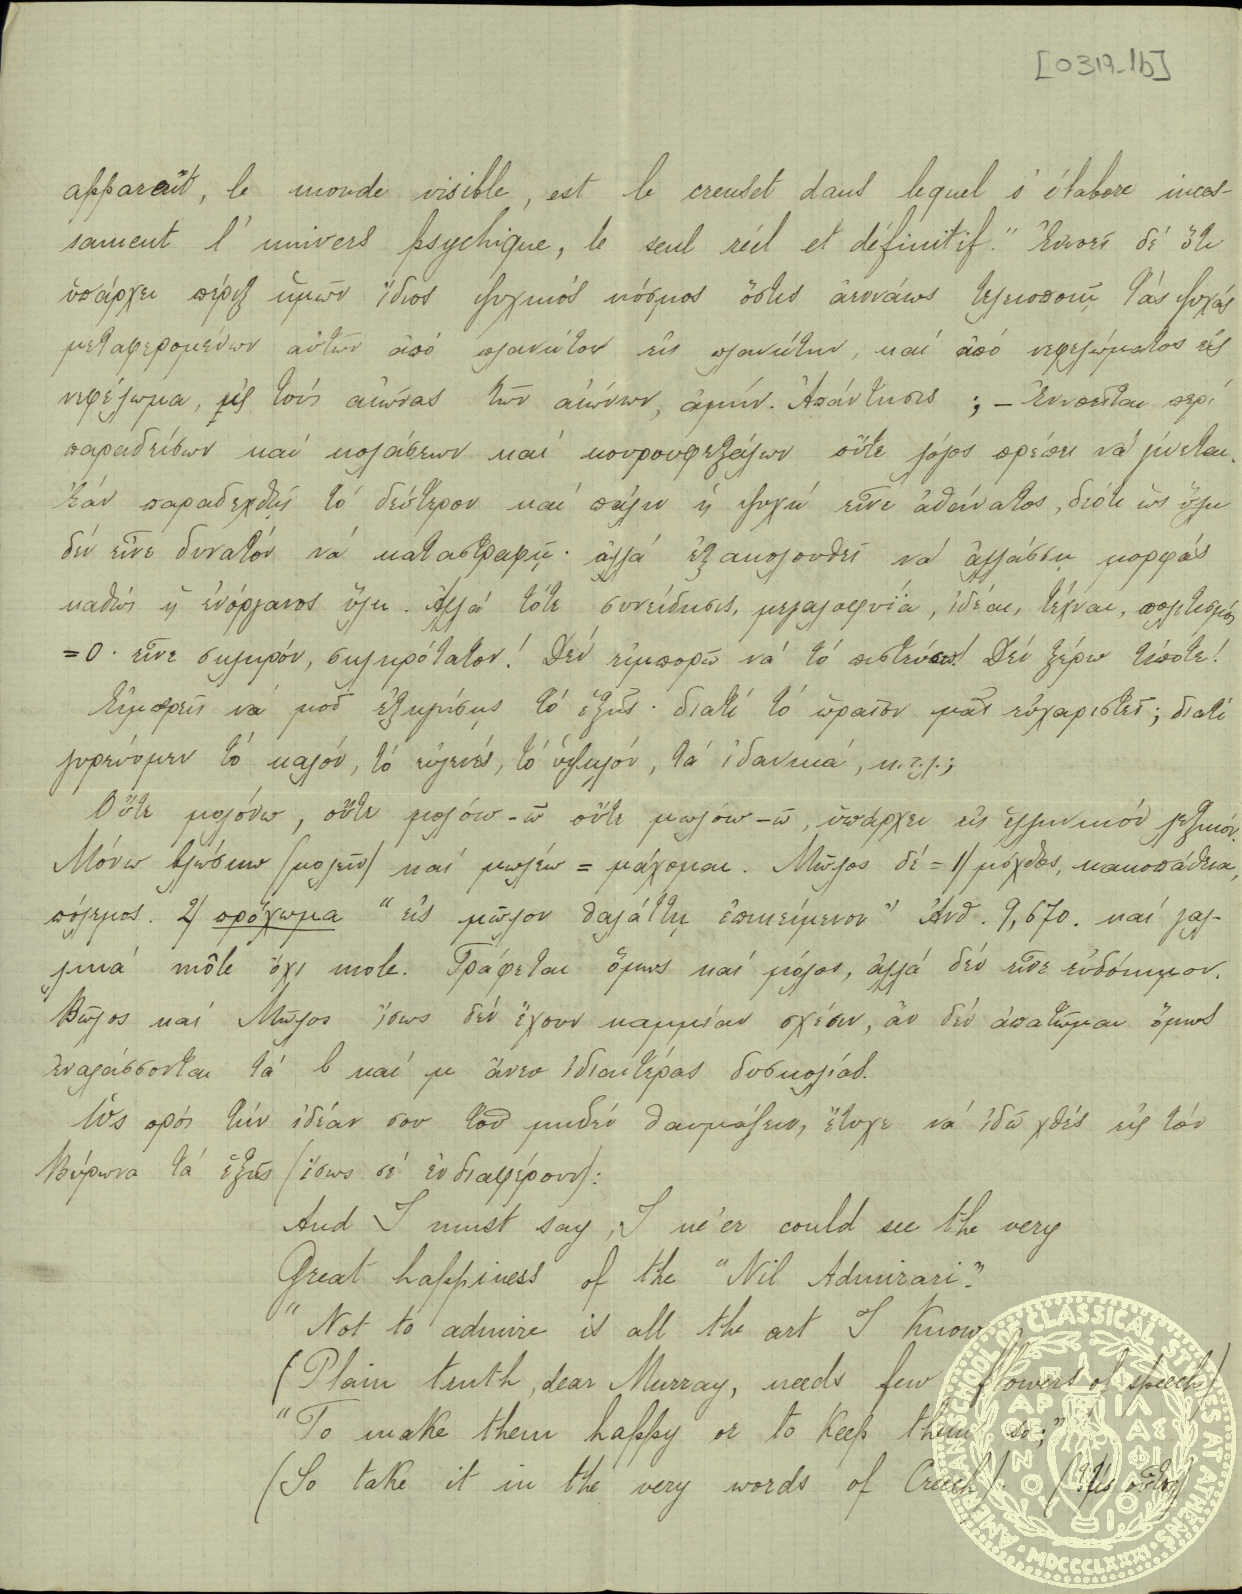 [0319-1b]
apparaît, le monde visible, est le creuset dans lequel s'élabore inces-
sament l'univers psychique, le seul réel et définitif." Ἐννοεῖ δέ ὅτι
ὑπάρχει πέριξ ἡμῶν ἴδιος ψυχικός κόσμος ὅστις ἀεννάως τελειοποιῇ τάς ψυχάς
μεταφερομένων αὐτῶν ἀπό πλανήτου εἰς πλανήτην, καί ἀπό νεφελώματος εἰς
νεφέλωμα, εἰς τούς αἰῶνας τῶν αἰώνων, ἀμήν. Ἀπάντησις ; – Ἐννοεῖται περί
παραδείσων καί κολάσεων καί κουρουφεξάλων οὔτε λόγος πρέπει νά γίνεται.
Ἐάν παραδεχθῇς τό δεύτερον καί πάλιν ἡ ψυχή εἶνε ἀθάνατος, διότι ὡς ὕλη
δέν εἶνε δυνατόν νά καταστραφῇ· ἀλλά ἐξακολουθεῖ νά ἀλλάσσῃ μορφάς
καθώς ἡ ἐνόργανος ὕλη. Ἀλλά τότε συνείδησις, μεγαλοφυΐα, ἰδέαι, τέχναι, πολιτισμός
= 0· εἶνε σκληρόν, σκληρότατον! Δέν εἰμπορῶ νά τό πιστεύσω! Δέν ξέρω τίποτε!
Εἰμπορεῖς νά μοῦ ἐξηγήσῃς τό ἑξῆς· διατί τό ὡραῖον μᾶς εὐχαριστεῖ; διατί
γυρεύομεν τό καλόν, τό εὐγενές, τό ὑψηλόν, τά ἰδανικά, κ.τ.λ.;
Οὔτε μολόνω, οὔτε μολόω-ῶ οὔτε μωλόω-ῶ, ὑπάρχει εἰς ἑλληνικόν λεξικόν.
Μόνω βλώσκω (μολεῖν) καί μωλέω = μάχομαι. Μῶλος δέ = 1/ μόχθος, κακοπάθεια,
πόλεμος. 2/ πρόχωμα "εἰς μῶλον θαλάττῃ ἐπικείμενον" Ἀνθ. 9,670. καί γαλ-
λικά môle ὄχι mole. Γράφεται ὅμως καί μόλος, ἀλλά δέν εἶνε εὐδόκιμον.
Βῶλος καί Μῶλος ἴσως δέν ἔχουν καμμίαν σχέσιν, ἄν δέν ἀπατῶμαι ὅμως
ἐναλάσσονται τά β καί μ ἄνευ ἰδιαιτέρας δυσκολίας.
Ὡς πρός τήν ἰδέαν σου τοῦ μηδέν θαυμάζειν, ἔτυχε νά ἰδῶ χθές εἰς τόν
Βύρωνα τά ἑξῆς (ἴσως σέ ἐνδιαφέρουν):
And I must say, I ne'er could see the very
Great happiness of the "Nil Admirari."
"Not to admire is all the art I know
(Plain truth, dear Murray, needs few flowers of speech)
"To make them happy or to keep them so;"
(So take it in the very words of Creech).
AMERICAN SCHOOL OF CLASSICAL STUDIES AT ATHENS · MDCCCLXXXI